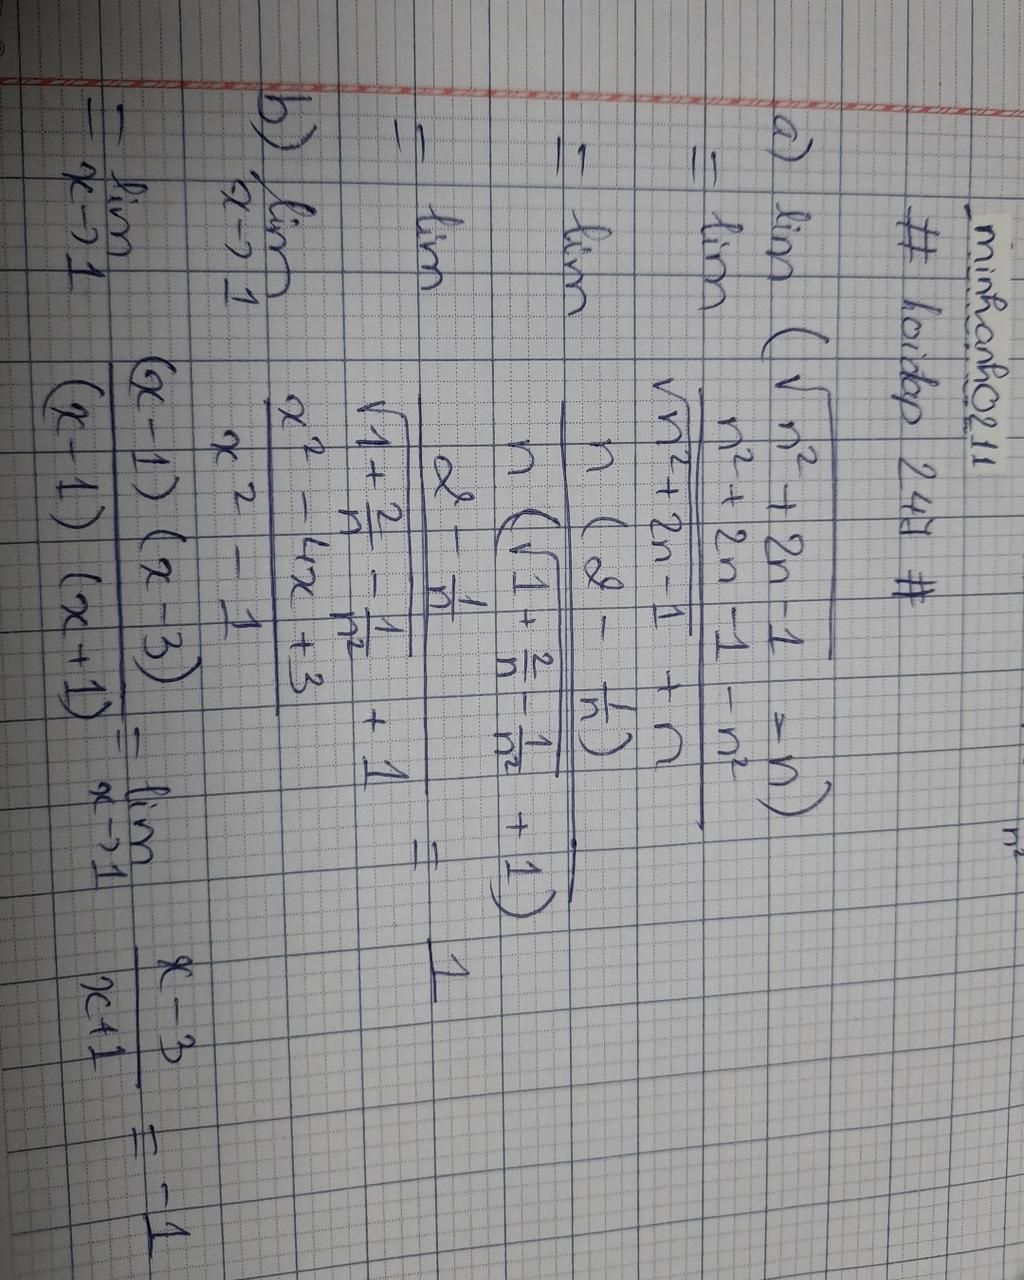 minhanh0211
# hoidap 247 #
n²
a) lim (√(n² + 2n - 1) - n)
= lim (n² + 2n - 1 - n²) / (√(n² + 2n - 1) + n)
= lim n(2 - 1/n) / n(√(1 + 2/n - 1/n²) + 1)
= lim (2 - 1/n) / (√(1 + 2/n - 1/n²) + 1) = 1
b) lim x→1 (x² - 4x + 3) / (x² - 1)
= lim x→1 (x - 1)(x - 3) / (x - 1)(x + 1) = lim x→1 (x - 3) / (x + 1) = -1